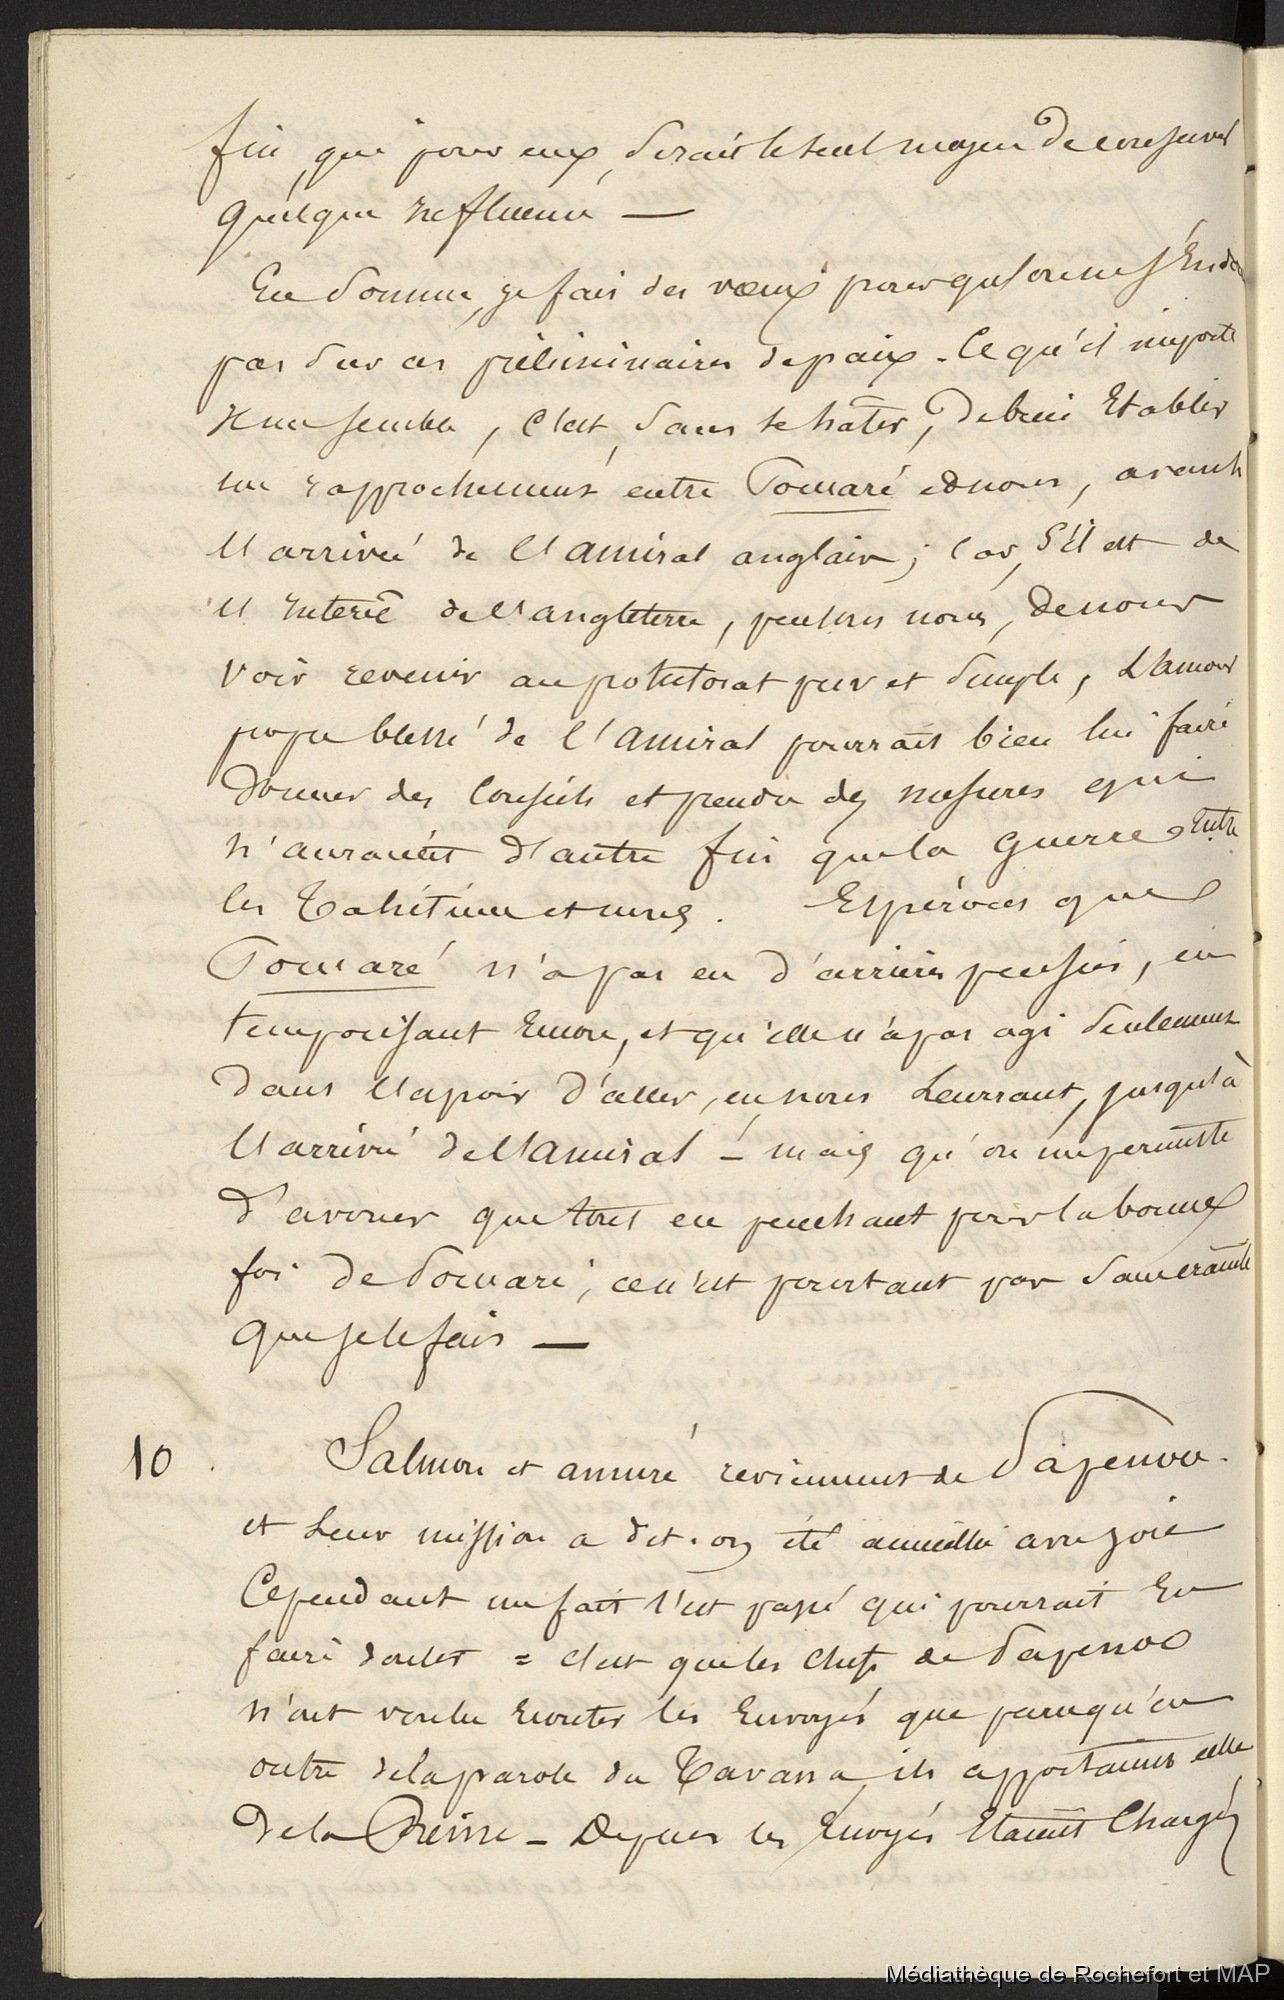 fin, qui pour eux, serait le seul moyen de conserver
quelque influence —
En somme, je fais des vœux pour qu'on ne s'endorme
pas sur ces préliminaires de paix. Ce qu'il importe
il me semble, c'est, sans se hâter, de bien établir
un rapprochement entre Pomaré et nous, avant
l'arrivée de l'amiral anglais; car, s'il est de
l'intérêt de l'angleterre, pensons nous, de nous
voir revenir au protectorat pur et simple, l'amour
propre blessé de l'amiral pourrait bien lui faire
donner des conseils et prendre des mesures qui
n'auraient d'autre fin que la guerre entre
les Tahitiens et nous. Espérons que
Pomaré n'a pas eu d'arrières pensées, en
temporisant encore, et qu'elle n'a pas agi seulement
dans l'espoir d'aller, en nous leurrant, jusqu'à
l'arrivée de l'amiral — mais qu'on me permette
d'avouer que tout en penchant pour la bonne
foi de Pomaré, ce n'est pourtant pas sans crainte
que je le fais —
10. Salmon et amuré reviennent de Papenoo.
et leur mission a dit-on été accueillie avec joie
Cependant un fait s'est passé qui pourrait en
faire douter = c'est que les chefs de Papenoo
n'ont voulu écouter les Envoyés que parcequ'en
outre de la parole du Tavana, ils apportaient celle
de la Reine — Depuis les Envoyés Etaient Chargés
Médiathèque de Rochefort et MAP